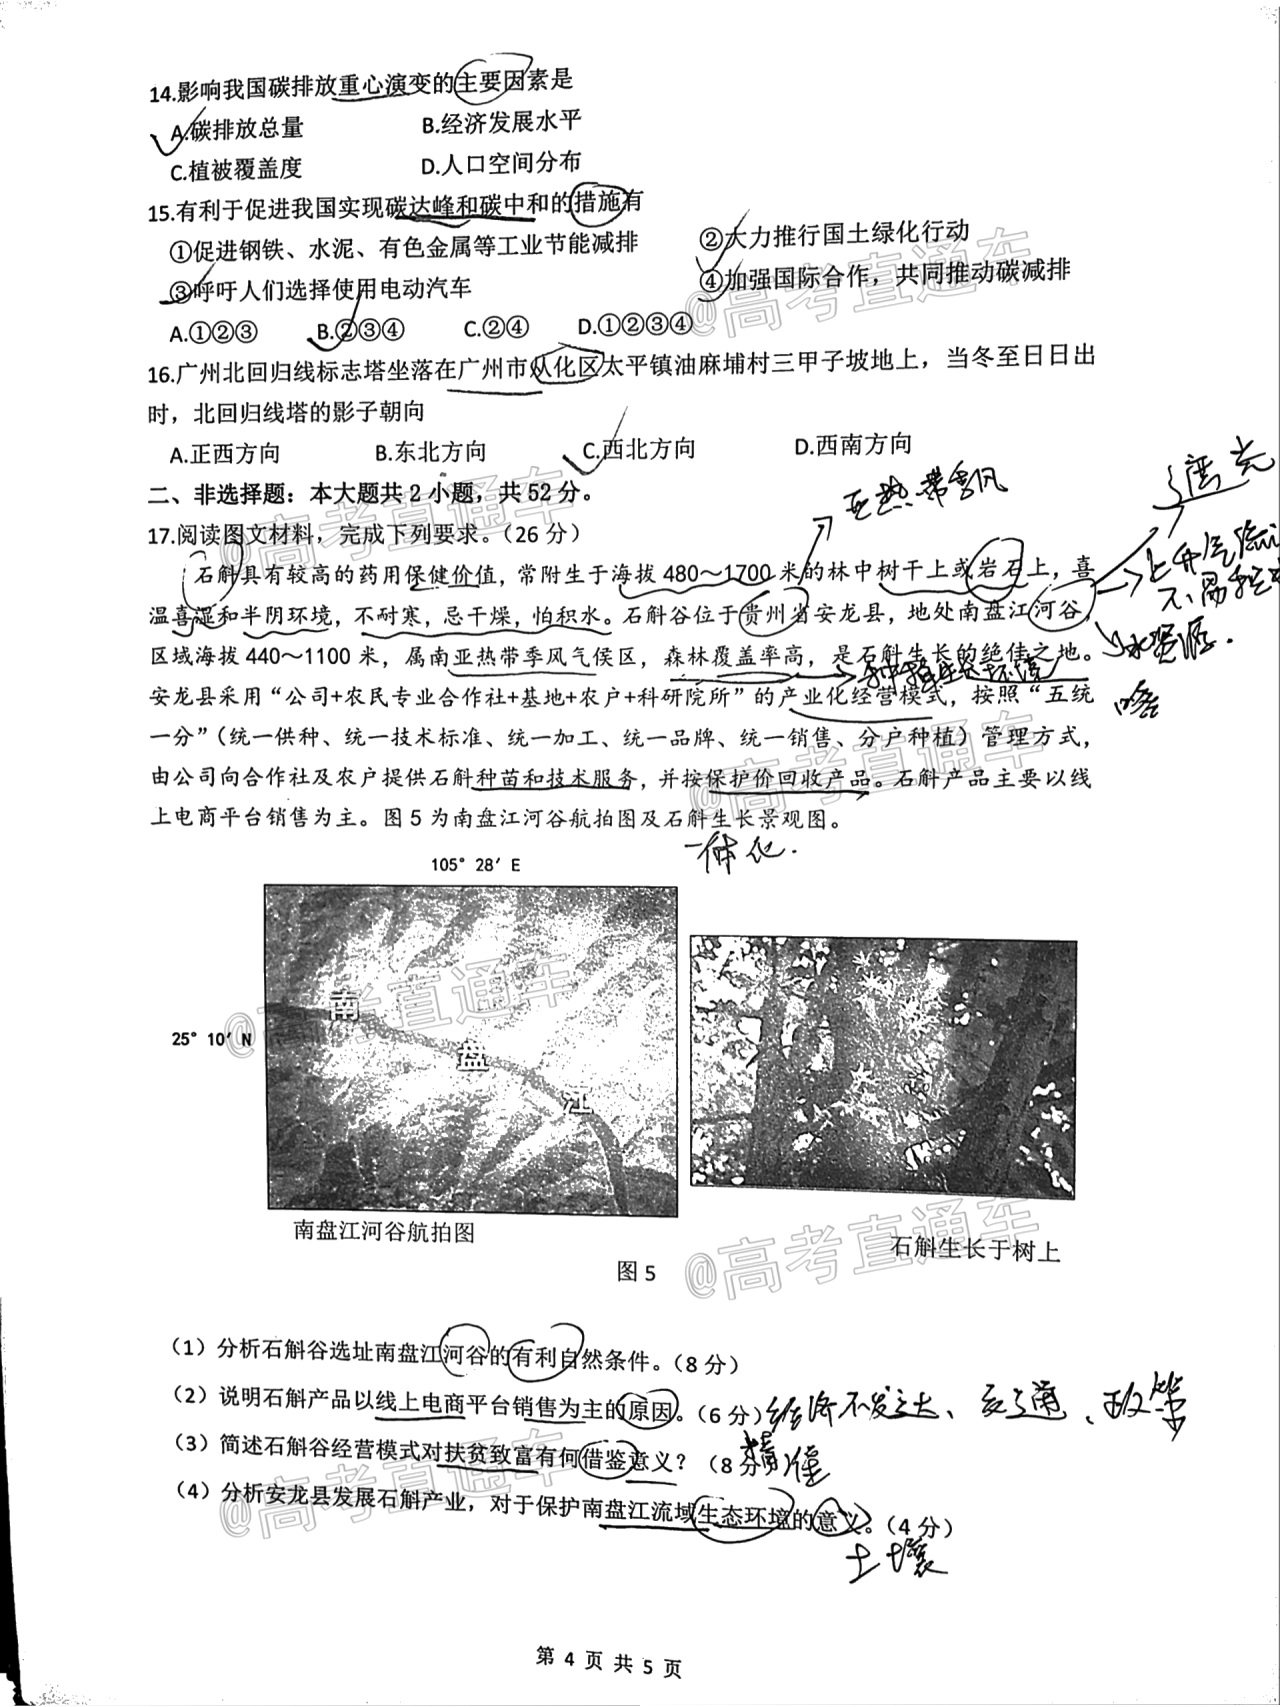 14.影响我国碳排放重心演变的主要因素是
A.碳排放总量 B.经济发展水平
C.植被覆盖度 D.人口空间分布
15.有利于促进我国实现碳达峰和碳中和的措施有
①促进钢铁、水泥、有色金属等工业节能减排 ②大力推行国土绿化行动
③呼吁人们选择使用电动汽车 ④加强国际合作，共同推动碳减排
A.①②③ B.②③④ C.②④ D.①②③④
16.广州北回归线标志塔坐落在广州市从化区太平镇油麻埔村三甲子坡地上，当冬至日日出
时，北回归线塔的影子朝向
A.正西方向 B.东北方向 C.西北方向 D.西南方向
二、非选择题：本大题共2小题，共52分。
亚热带季风
遮光
17.阅读图文材料，完成下列要求。（26分）
石斛具有较高的药用保健价值，常附生于海拔480～1700米的林中树干上或岩石上，喜
上升气流
温喜湿和半阴环境，不耐寒，忌干燥，怕积水。石斛谷位于贵州省安龙县，地处南盘江河谷，
水资源.
区域海拔440～1100米，属南亚热带季风气候区，森林覆盖率高，是石斛生长的绝佳之地。
安龙县采用“公司+农民专业合作社+基地+农户+科研院所”的产业化经营模式，按照“五统
一分”（统一供种、统一技术标准、统一加工、统一品牌、统一销售、分户种植）管理方式，
由公司向合作社及农户提供石斛种苗和技术服务，并按保护价回收产品。石斛产品主要以线
上电商平台销售为主。图5为南盘江河谷航拍图及石斛生长景观图。
一体化.
105° 28′ E
25° 10′ N
南
盘
江
南盘江河谷航拍图
石斛生长于树上
图5
（1）分析石斛谷选址南盘江河谷的有利自然条件。（8分）
（2）说明石斛产品以线上电商平台销售为主的原因。（6分）经济不发达、交通、政策
（3）简述石斛谷经营模式对扶贫致富有何借鉴意义？（8分）
（4）分析安龙县发展石斛产业，对于保护南盘江流域生态环境的意义。（4分）
土壤
第4页共5页
@高考直通车
@高考直通车
@高考直通车
@高考直通车
@高考直通车
@高考直通车